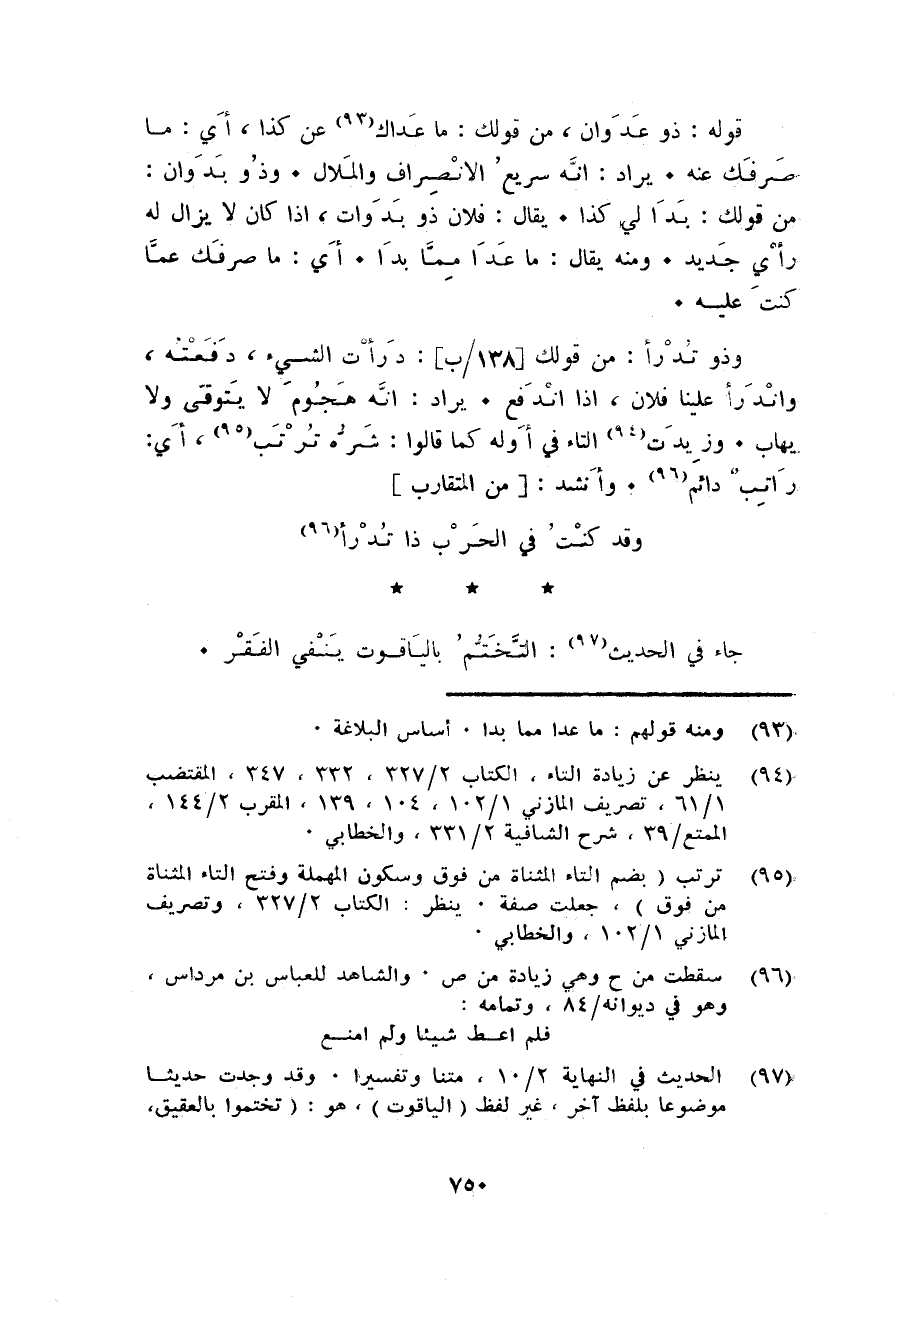 قوله : ذو عَدَوان ، من قولك : ما عَداك(٩٣) عن كذا ، أَي : مـا
صَرفَك عنه ٠ يراد : انَّه سريعُ الانْصِراف والمَلال ٠ وذُو بَدَوان :
من قولك : بَدَا لي كذا ٠ يقال : فلان ذو بَدَوات ، اذا كان لا يزال له
رأْي جَديد ٠ ومنه يقال : ما عَدَا مِمَّا بدَا ٠ أَي : ما صرفَك عمَّا
كنتَ عليـه ٠
وذو تُدْرأ : من قولك [١٣٨/ب] : دَرأْت الشـيء ، دَفَعْتُه ،
وانْدَرأ علينا فلان ، اذا انْدَفع ٠ يراد : انَّه هَجُومَ لا يَتوقى ولا
يهاب ٠ وزِيدَت(٩٤) التاء في أَوله كما قالوا : شَرٌّ تُرْتَب(٩٥) ، أَي:
رَاتِب دائم(٩٦) ٠ وأَنشد : [ من المتقارب ]
وقد كنْتُ في الحَرْب ذا تُدْرأ(٩٦)
★ ★ ★
جاء في الحديث(٩٧) : التَّخَتُّمُ بالياقـوت يَنْفي الفَقْر ٠
(٩٣) ومنه قولهم : ما عدا مما بدا ٠ أساس البلاغة ٠
(٩٤) ينظر عن زيادة التاء ، الكتاب ٣٢٧/٢ ، ٣٣٢ ، ٣٤٧ ، المقتضب
٦١/١ ، تصريف المازني ١٠٢/١ ، ١٠٤ ، ١٣٩ ، المقرب ١٤٤/٢ ،
الممتع/٣٩ ، شرح الشافية ٣٣١/٢ ، والخطابي ٠
(٩٥) ترتب ( بضم التاء المثناة من فوق وسكون المهملة وفتح التاء المثناة
من فوق ) ، جعلت صفة ٠ ينظر : الكتاب ٣٢٧/٢ ، وتصريف
المازني ١٠٢/١ ، والخطابي ٠
(٩٦) سقطت من ح وهي زيادة من ص ٠ والشاهد للعباس بن مرداس ،
وهو في ديوانه/٨٤ ، وتمامه :
فلم اعـط شيئا ولم امنـع
(٩٧) الحديث في النهاية ١٠/٢ ، متنا وتفسيرا ٠ وقد وجدت حديثـا
موضوعا بلفظ آخر ، غير لفظ ( الياقوت ) ، هو : ( تختموا بالعقيق،
٧٥٠